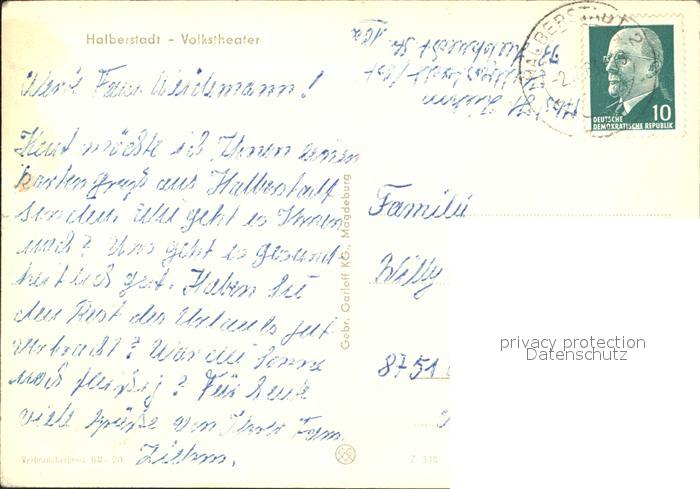 Halberstadt - Volkstheater
Werte Fam. Weidemann!
Heut möchte ich Ihnen einen
Kartengruß aus Halberstadt
senden. Wie geht es Ihnen
noch? Uns geht es gesund-
heitlich gut. Haben Sie
den Rest des Urlaubs gut
verbracht? War die Sonne
noch fleißig? Für heute
viele Grüße von Ihrer Fam.
Verbraucherpreis DM -.20
Gebr. Garloff KG., Magdeburg
Z 338
HALBERSTADT 2
10
DEUTSCHE
DEMOKRATISCHE REPUBLIK
Familie
Willy
8751
privacy protection
Datenschutz